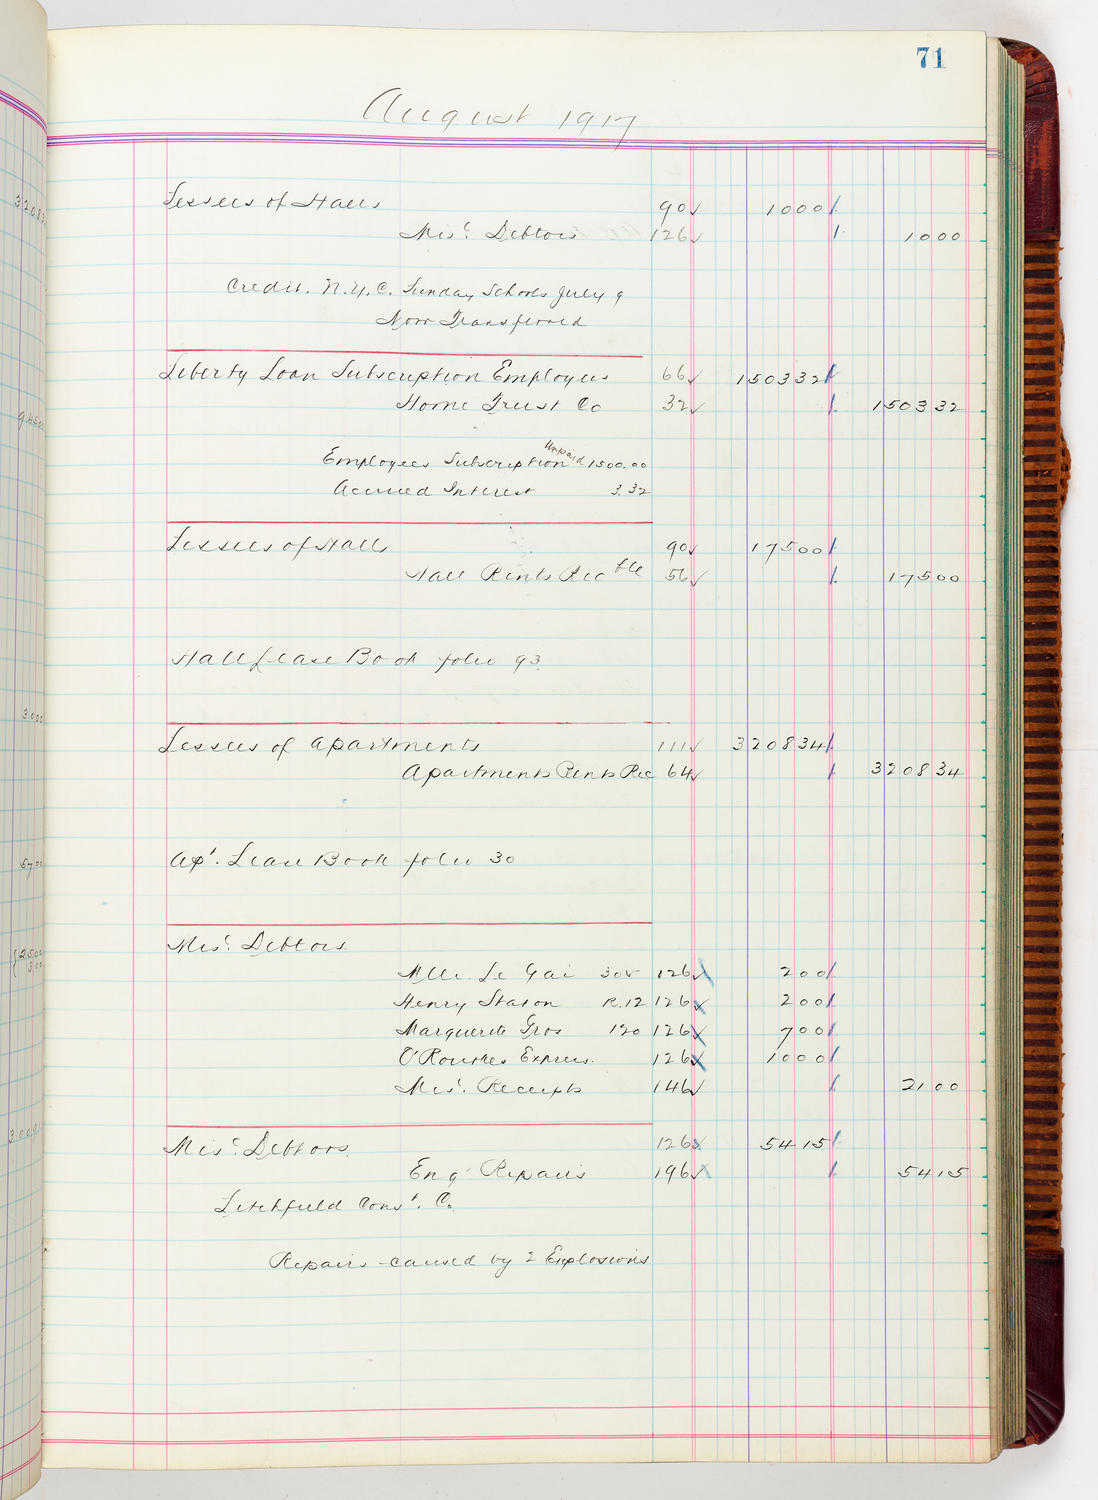 71
August 1917
Lessees of Halls 90 1000
Misc. Debtors 126 1000
Credit. N.Y.C. Sunday Schools July 9
Now Transferred
Liberty Loan Subscription Employees 66 150332
Home Trust Co 32 150332
Employees Subscription Unpaid 1500.00
Accrued Interest 3.32
Lessees of Halls 90 17500
Hall Rents Rec ble 56 17500
Hall Lease Book folio 93
Lessees of Apartments 111 320834
Apartments Rents Rec 64 320834
Apt. Lease Book folio 30
Misc. Debtors
Mlle. Le Gai 305 126 200
Henry Stason R.12 126 200
Marguerite Gros 120 126 700
O'Rourkes Express. 126 1000
Misc. Receipts 146 2100
Misc. Debtors 126 5415
Eng Repairs 196 5415
Litchfield Const. Co.
Repairs caused by 2 Explosions